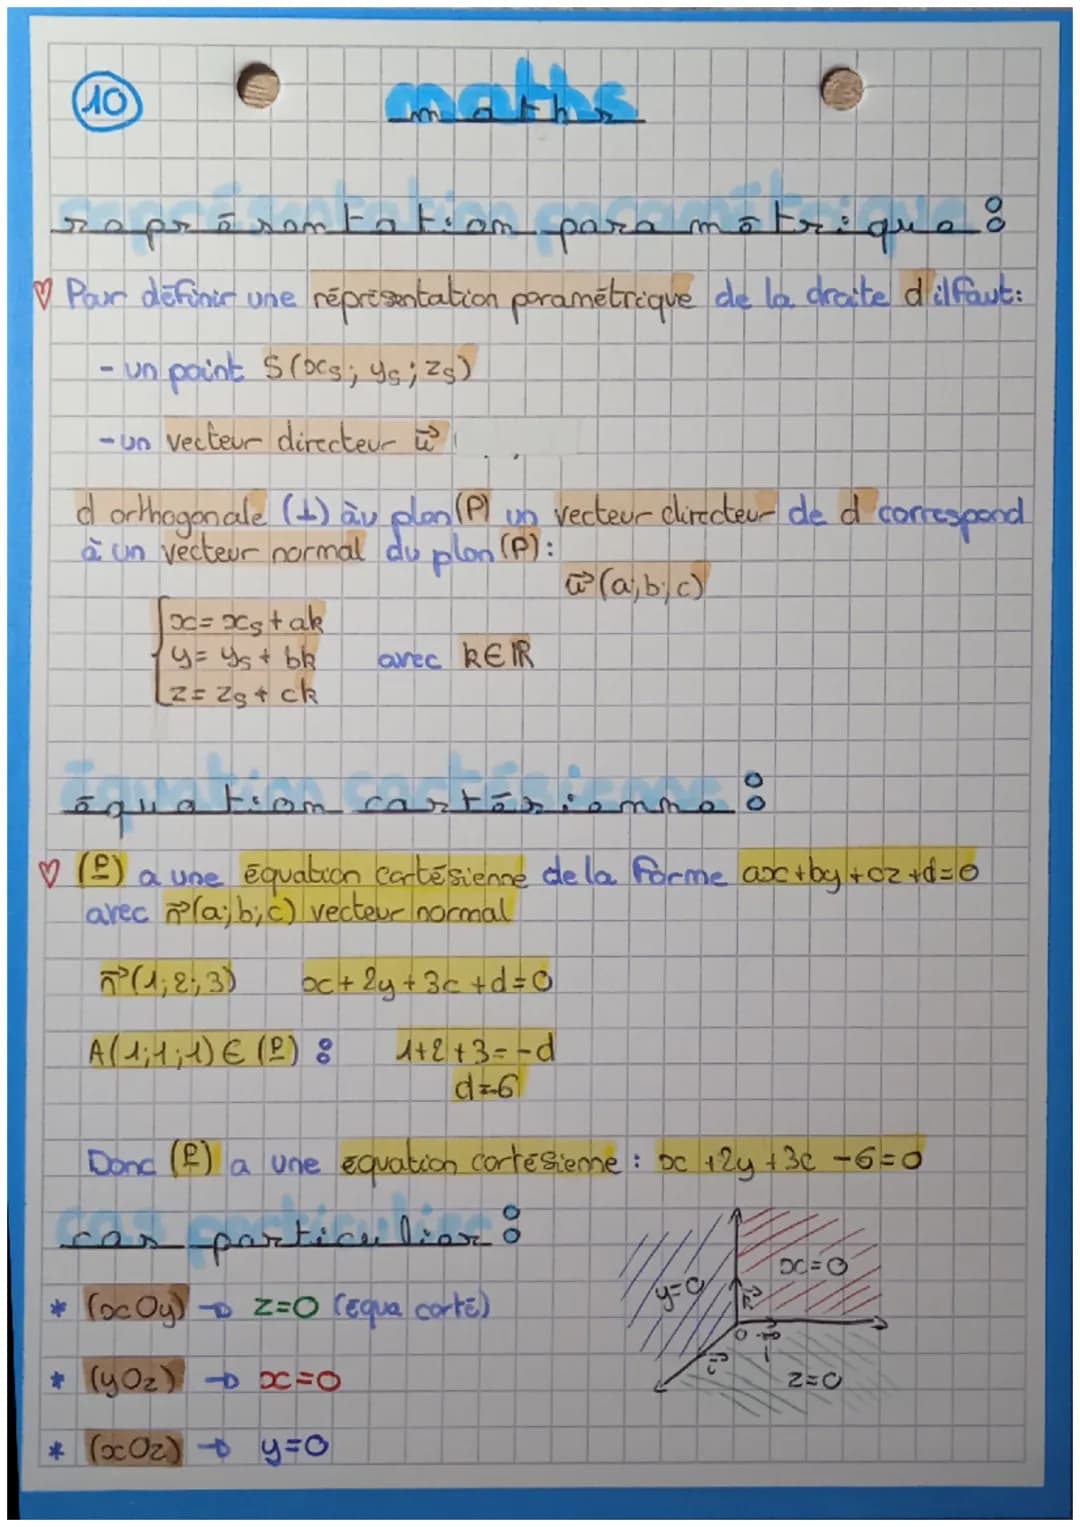 10
maths
représentation paramétrique :
♡ Pour définir une réprésentation paramétrique de la droite d il faut:
- un point S(xs; ys; zs)
- un vecteur directeur u⃗
d orthogonale (⊥) àu plan (P) un vecteur directeur de d correspond
à un vecteur normal du plan (P):
u⃗(a;b;c)
x= xs + ak
y= ys + bk avec k∈ℝ
z= zs + ck
équation cartésienne :
♡ (P) a une équation cartésienne de la forme ax+by+cz+d=0
avec n⃗(a;b;c) vecteur normal
n⃗(1;2;3) x+2y+3c+d=0
A(1;1;1) ∈ (P) : 1+2+3=-d
d=-6
Donc (P) a une équation cartésienne : x+2y+3c-6=0
cas particulier :
* (xOy) → z=0 (équa carté)
* (yOz) → x=0
* (xOz) → y=0
x=0
y=0
k⃗
O j⃗
i⃗
z=0